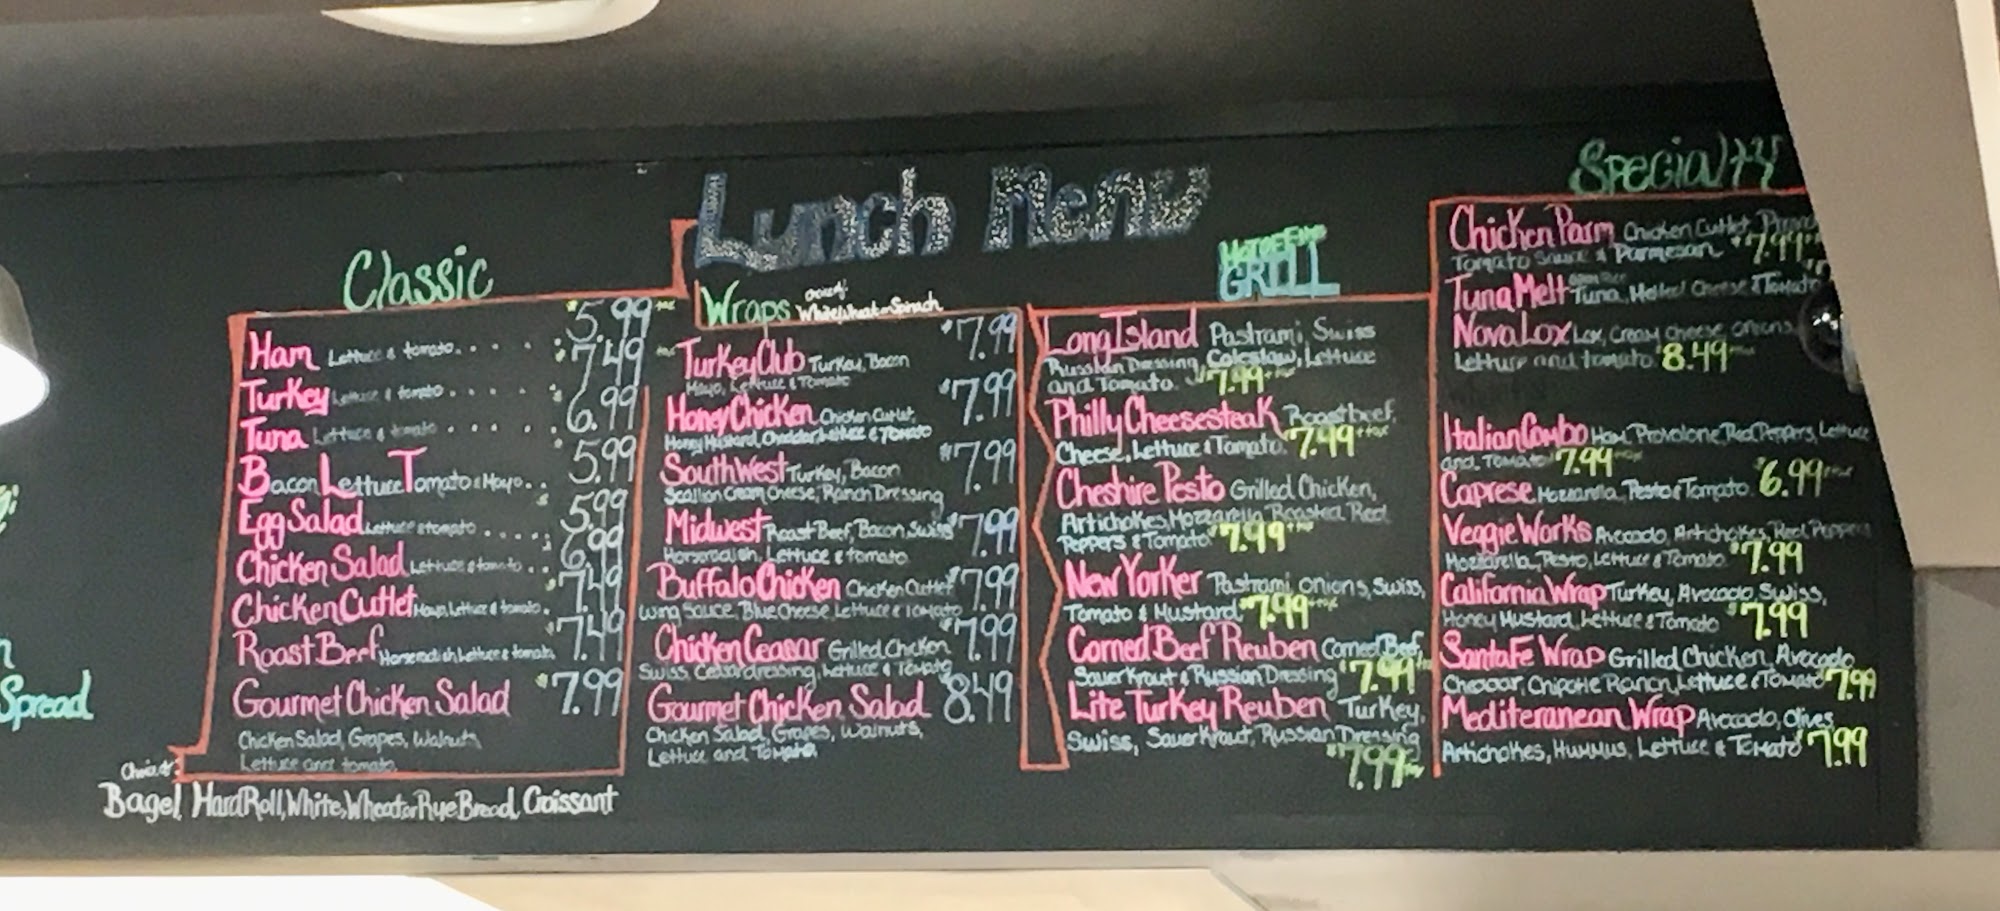 Lunch Menu
Classic
Ham Lettuce & tomato . . . . : $5.99
Turkey Lettuce & tomato . . . . . $7.49
Tuna Lettuce & tomato . . . . . 6.99
Bacon Lettuce Tomato & Mayo . . 5.99
Egg Salad Lettuce & tomato . . . . 5.99
Chicken Salad Lettuce & tomato . . 6.99
Chicken Cutlet Mayo, Lettuce & tomato . $7.49
Roast Beef Horseradish Lettuce & tomato $7.49
Gourmet Chicken Salad $7.99
Chicken Salad, Grapes, Walnuts,
Lettuce and tomato
Choice of:
Bagel, Hard Roll, White, Wheat or Rye Bread, Croissant
Spread
Wraps
White, Wheat or Spinach
Turkey Club Turkey, Bacon $7.99
Mayo, Lettuce & Tomato
Honey Chicken Chicken Cutlet, $7.99
Honey Mustard, Cheddar, Lettuce & Tomato
SouthWest Turkey, Bacon $7.99
Scallion Cream Cheese, Ranch Dressing
Midwest Roast Beef, Bacon, Swiss $7.99
Horseradish, Lettuce & tomato
Buffalo Chicken Chicken Cutlet $7.99
Wing Sauce, Blue Cheese, Lettuce & Tomato
Chicken Ceasar Grilled Chicken $7.99
Swiss, Ceasar dressing, Lettuce & Tomato
Gourmet Chicken Salad 8.49
Chicken Salad, Grapes, Walnuts,
Lettuce and Tomato
GRILL
Long Island Pastrami, Swiss
Russian Dressing, Coleslaw, Lettuce
and Tomato. $7.99 + tax
Philly Cheesesteak Roast beef,
Cheese, Lettuce & Tomato. $7.49 + tax
Cheshire Pesto Grilled Chicken,
Artichokes, Mozzarella, Roasted Red
Peppers & Tomato $7.99 + tax
New Yorker Pastrami, onions, Swiss,
Tomato & Mustard $7.99 + tax
Corned Beef Reuben Corned Beef,
Sauerkraut & Russian Dressing $7.99 + tax
Lite Turkey Reuben Turkey,
Swiss, Sauerkraut, Russian Dressing
$7.99
Specialty
Chicken Parm Chicken Cutlet,
Tomato Sauce & Parmesan $7.99
Tuna Melt Tuna, Melted Cheese & Tomato
Nova Lox Lox, Cream Cheese, onions
Lettuce and tomato $8.49
Italian Combo Ham, Provolone, Red Peppers, Lettuce
and Tomato $7.99
Caprese Mozzarella, Pesto & Tomato $6.99
Veggie Works Avocado, Artichokes, Red Peppers
Mozzarella, Pesto, Lettuce & Tomato $7.99
California Wrap Turkey, Avocado, Swiss,
Honey Mustard, Lettuce & Tomato $7.99
Santa Fe Wrap Grilled Chicken, Avocado
Cheddar, Chipotle Ranch, Lettuce & Tomato $7.99
Mediteranean Wrap Avocado, Olives
Artichokes, Hummus, Lettuce & Tomato $7.99